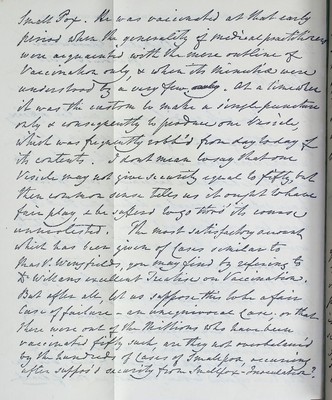 Small Pox. He was vaccinated at that early
period when the generality of medical practitioners
were acquainted with the mere outline of
Vaccination only & when its minutiæ were
understood by a very few only. At a time when
it was the custom to make a single puncture
only & consequently to produce one Vesicle,
which was frequently robb'd from day to day of
its contents. I dont mean to say that one
Vesicle may not give security equal to fifty, but
then common sense tells us it ought to have
fair play & be suffered to go thro' its course
unmolested. The most satisfactory account
which has been given of Cases similar to
Mas.r Wingfields, you may find by refering to
Dr Willans excellent Treatise on Vaccination.
But after all, let us suppose this to be a fair
Case of failure - an unequivocal Case; or that
there were out of the Millions who have been
vaccinated fifty such, are they not overbalanc'd
by the hundreds of Cases of Smallpox, occurring
after suppos'd security from Smallpox-Inoculation?